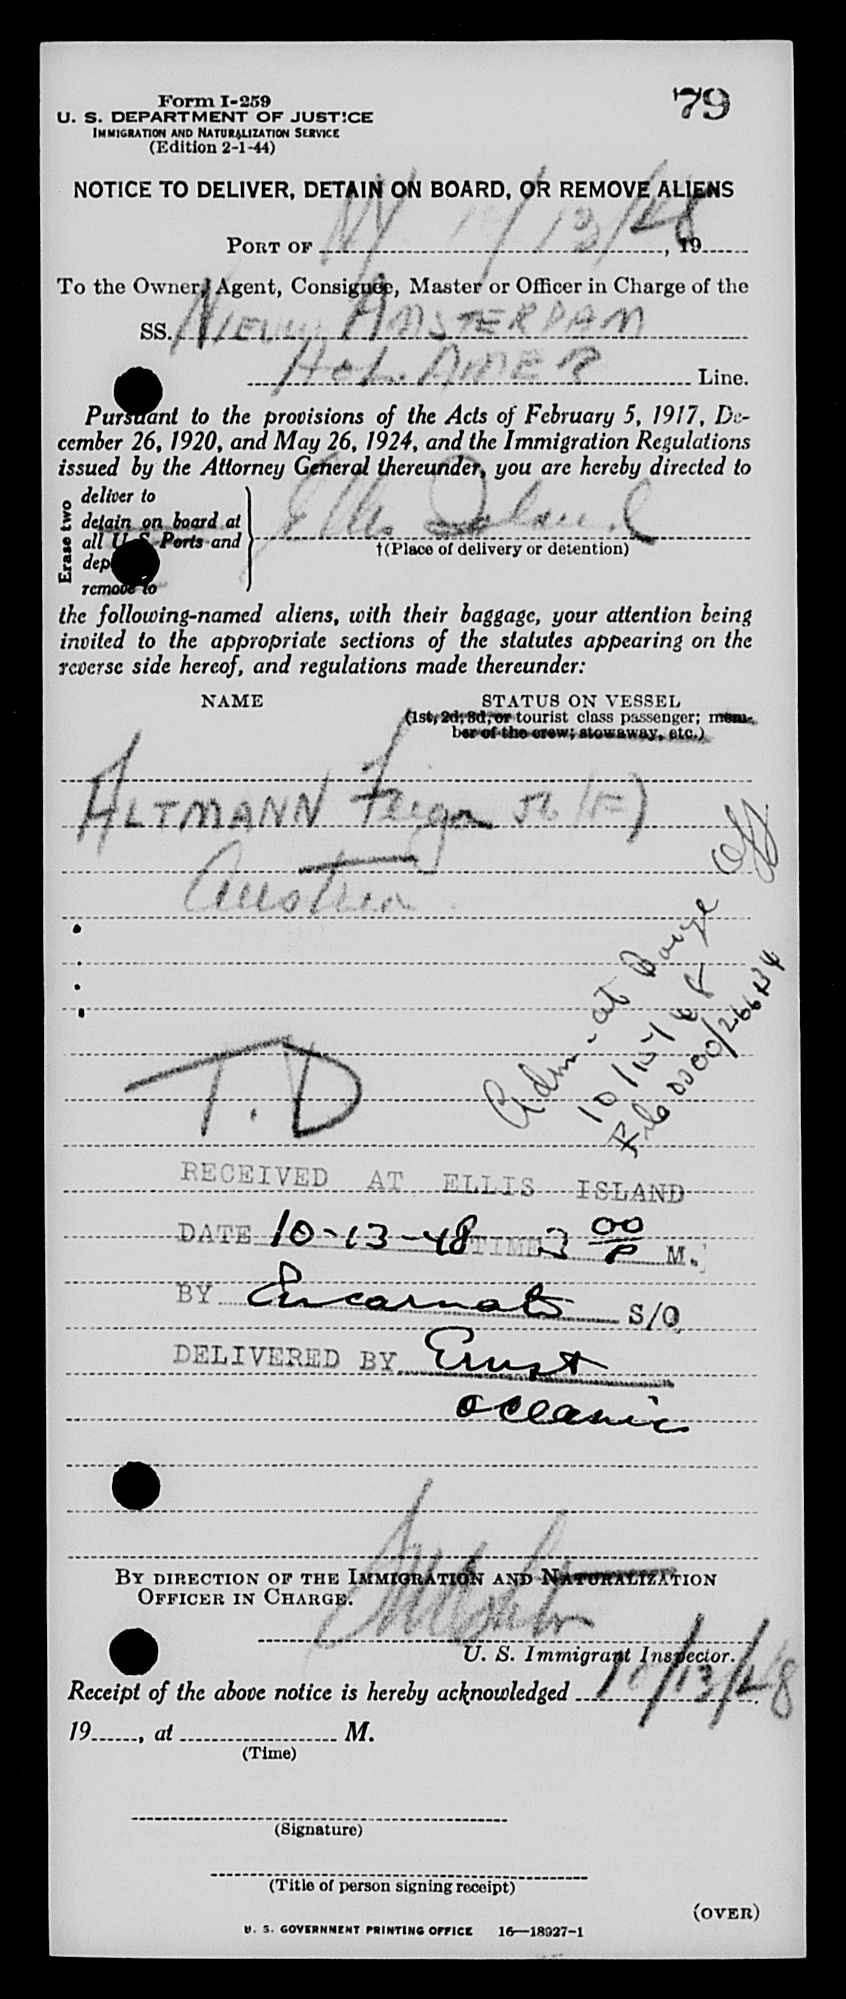 Form I-259
79
U. S. DEPARTMENT OF JUSTICE
IMMIGRATION AND NATURALIZATION SERVICE
(Edition 2-1-44)
NOTICE TO DELIVER, DETAIN ON BOARD, OR REMOVE ALIENS
PORT OF NY 10/13/48, 19
To the Owner, Agent, Consignee, Master or Officer in Charge of the
SS. NIEUW AMSTERDAM
HOL. AMER Line.
Pursuant to the provisions of the Acts of February 5, 1917, De-
cember 26, 1920, and May 26, 1924, and the Immigration Regulations
issued by the Attorney General thereunder, you are hereby directed to
Erase two
deliver to
detain on board at
all U S Ports and
dep
remove to
Ellis Island
†(Place of delivery or detention)
the following-named aliens, with their baggage, your attention being
invited to the appropriate sections of the statutes appearing on the
reverse side hereof, and regulations made thereunder:
NAME STATUS ON VESSEL
(1st, 2d, 3d, or tourist class passenger; mem-
ber of the crew; stowaway, etc.)
ALTMANN Feiga 56 (F)
Austria
Adm. at Barge Off
10/ 48
File 0300/266134
T.D
RECEIVED AT ELLIS ISLAND
DATE 10-13-48 TIME 3 00 P M.
BY Encarnato S/O
DELIVERED BY Ernst
oceanic
BY DIRECTION OF THE IMMIGRATION AND NATURALIZATION
OFFICER IN CHARGE.
U. S. Immigrant Inspector.
Receipt of the above notice is hereby acknowledged 10/13/48
19, at M.
(Time)
(Signature)
(Title of person signing receipt)
(OVER)
U. S. GOVERNMENT PRINTING OFFICE 16—18927-1